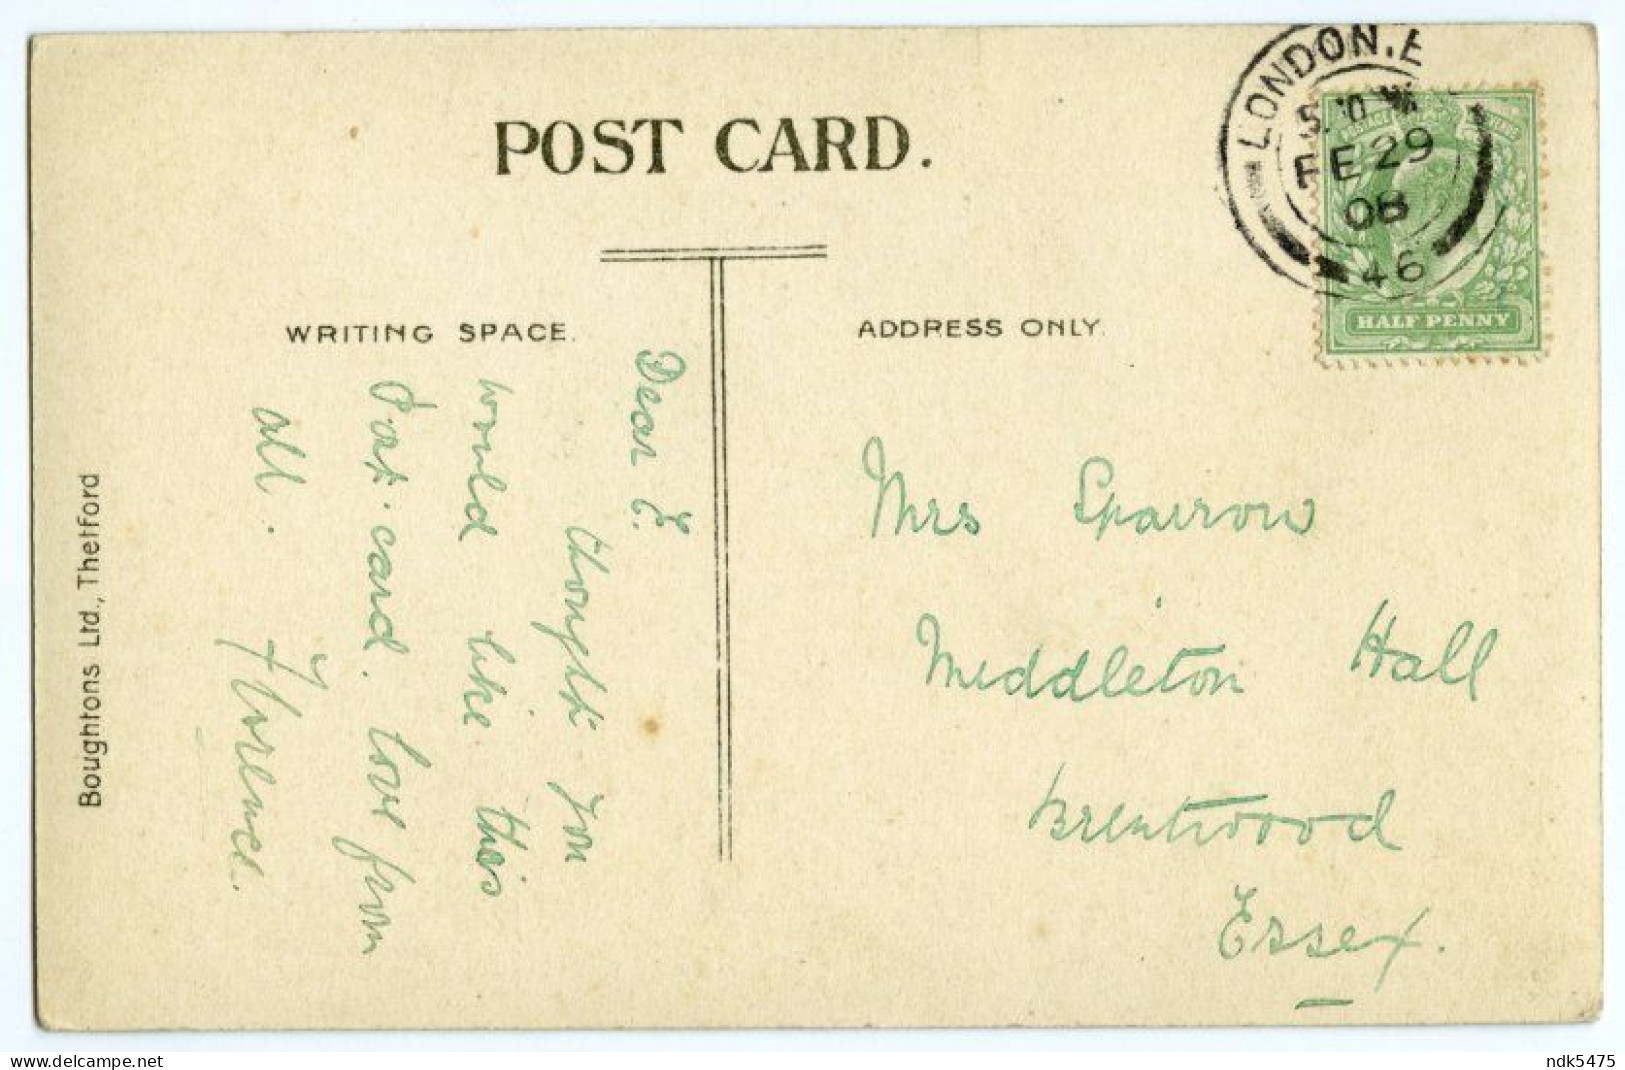 POST CARD.
WRITING SPACE.
ADDRESS ONLY.
LONDON. E
FE 29
08
46
HALF PENNY
Dear E.
thought you
would like this
Post. card. love from
all. Florence.
Mrs Sparrow
Middleton Hall
Brentwood
Essex.
Boughtons Ltd., Thetford
delcampe.net
ndk5475